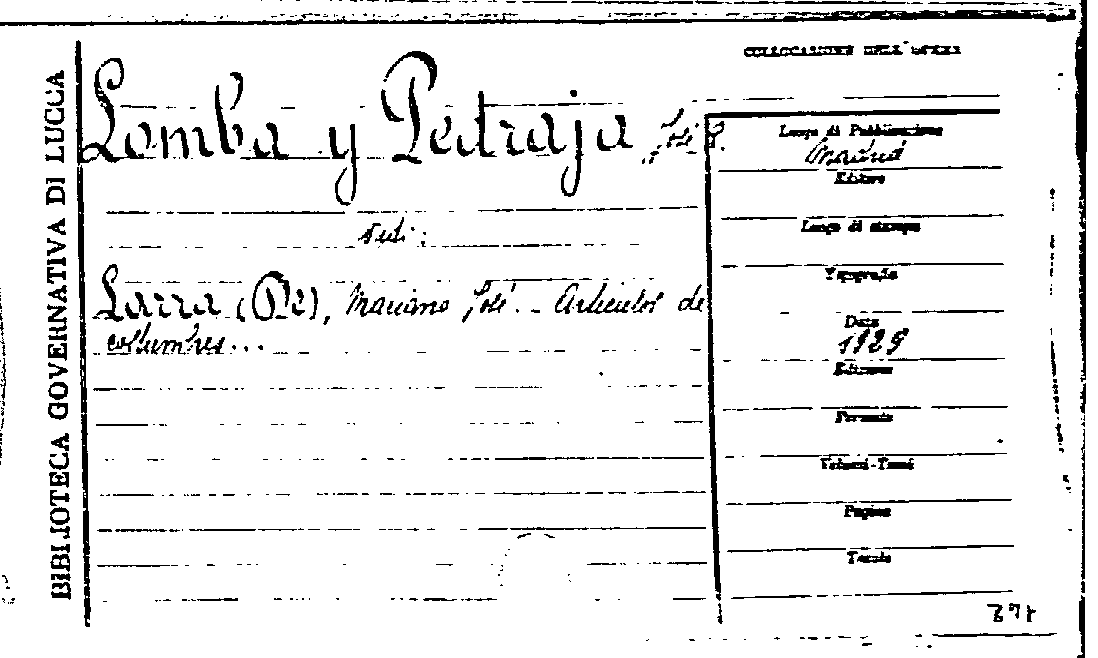 BIBLIOTECA GOVERNATIVA DI LUCCA
Lomba y Pedraja, José R.
vedi:
Larra (De), Mariano José. - Articulos de
costumbres...
COLLOCAZIONE DELL'OPERA
Luogo di Pubblicazione
Madrid
Editore
Luogo di stampa
Tipografia
Data
1929
Edizione
Formato
Volumi-Tomi
Pagine
Tavole